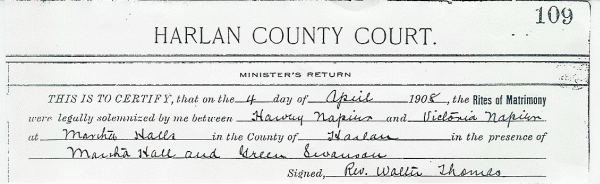 109
HARLAN COUNTY COURT.
MINISTER'S RETURN
THIS IS TO CERTIFY, that on the 4 day of April 1908, the Rites of Matrimony
were legally solemnized by me between Harvey Napier and Victoria Napier
at Martha Halls in the County of Harlan in the presence of
Martha Hall and Green Swanson
Signed, Rev. Walter Thomas